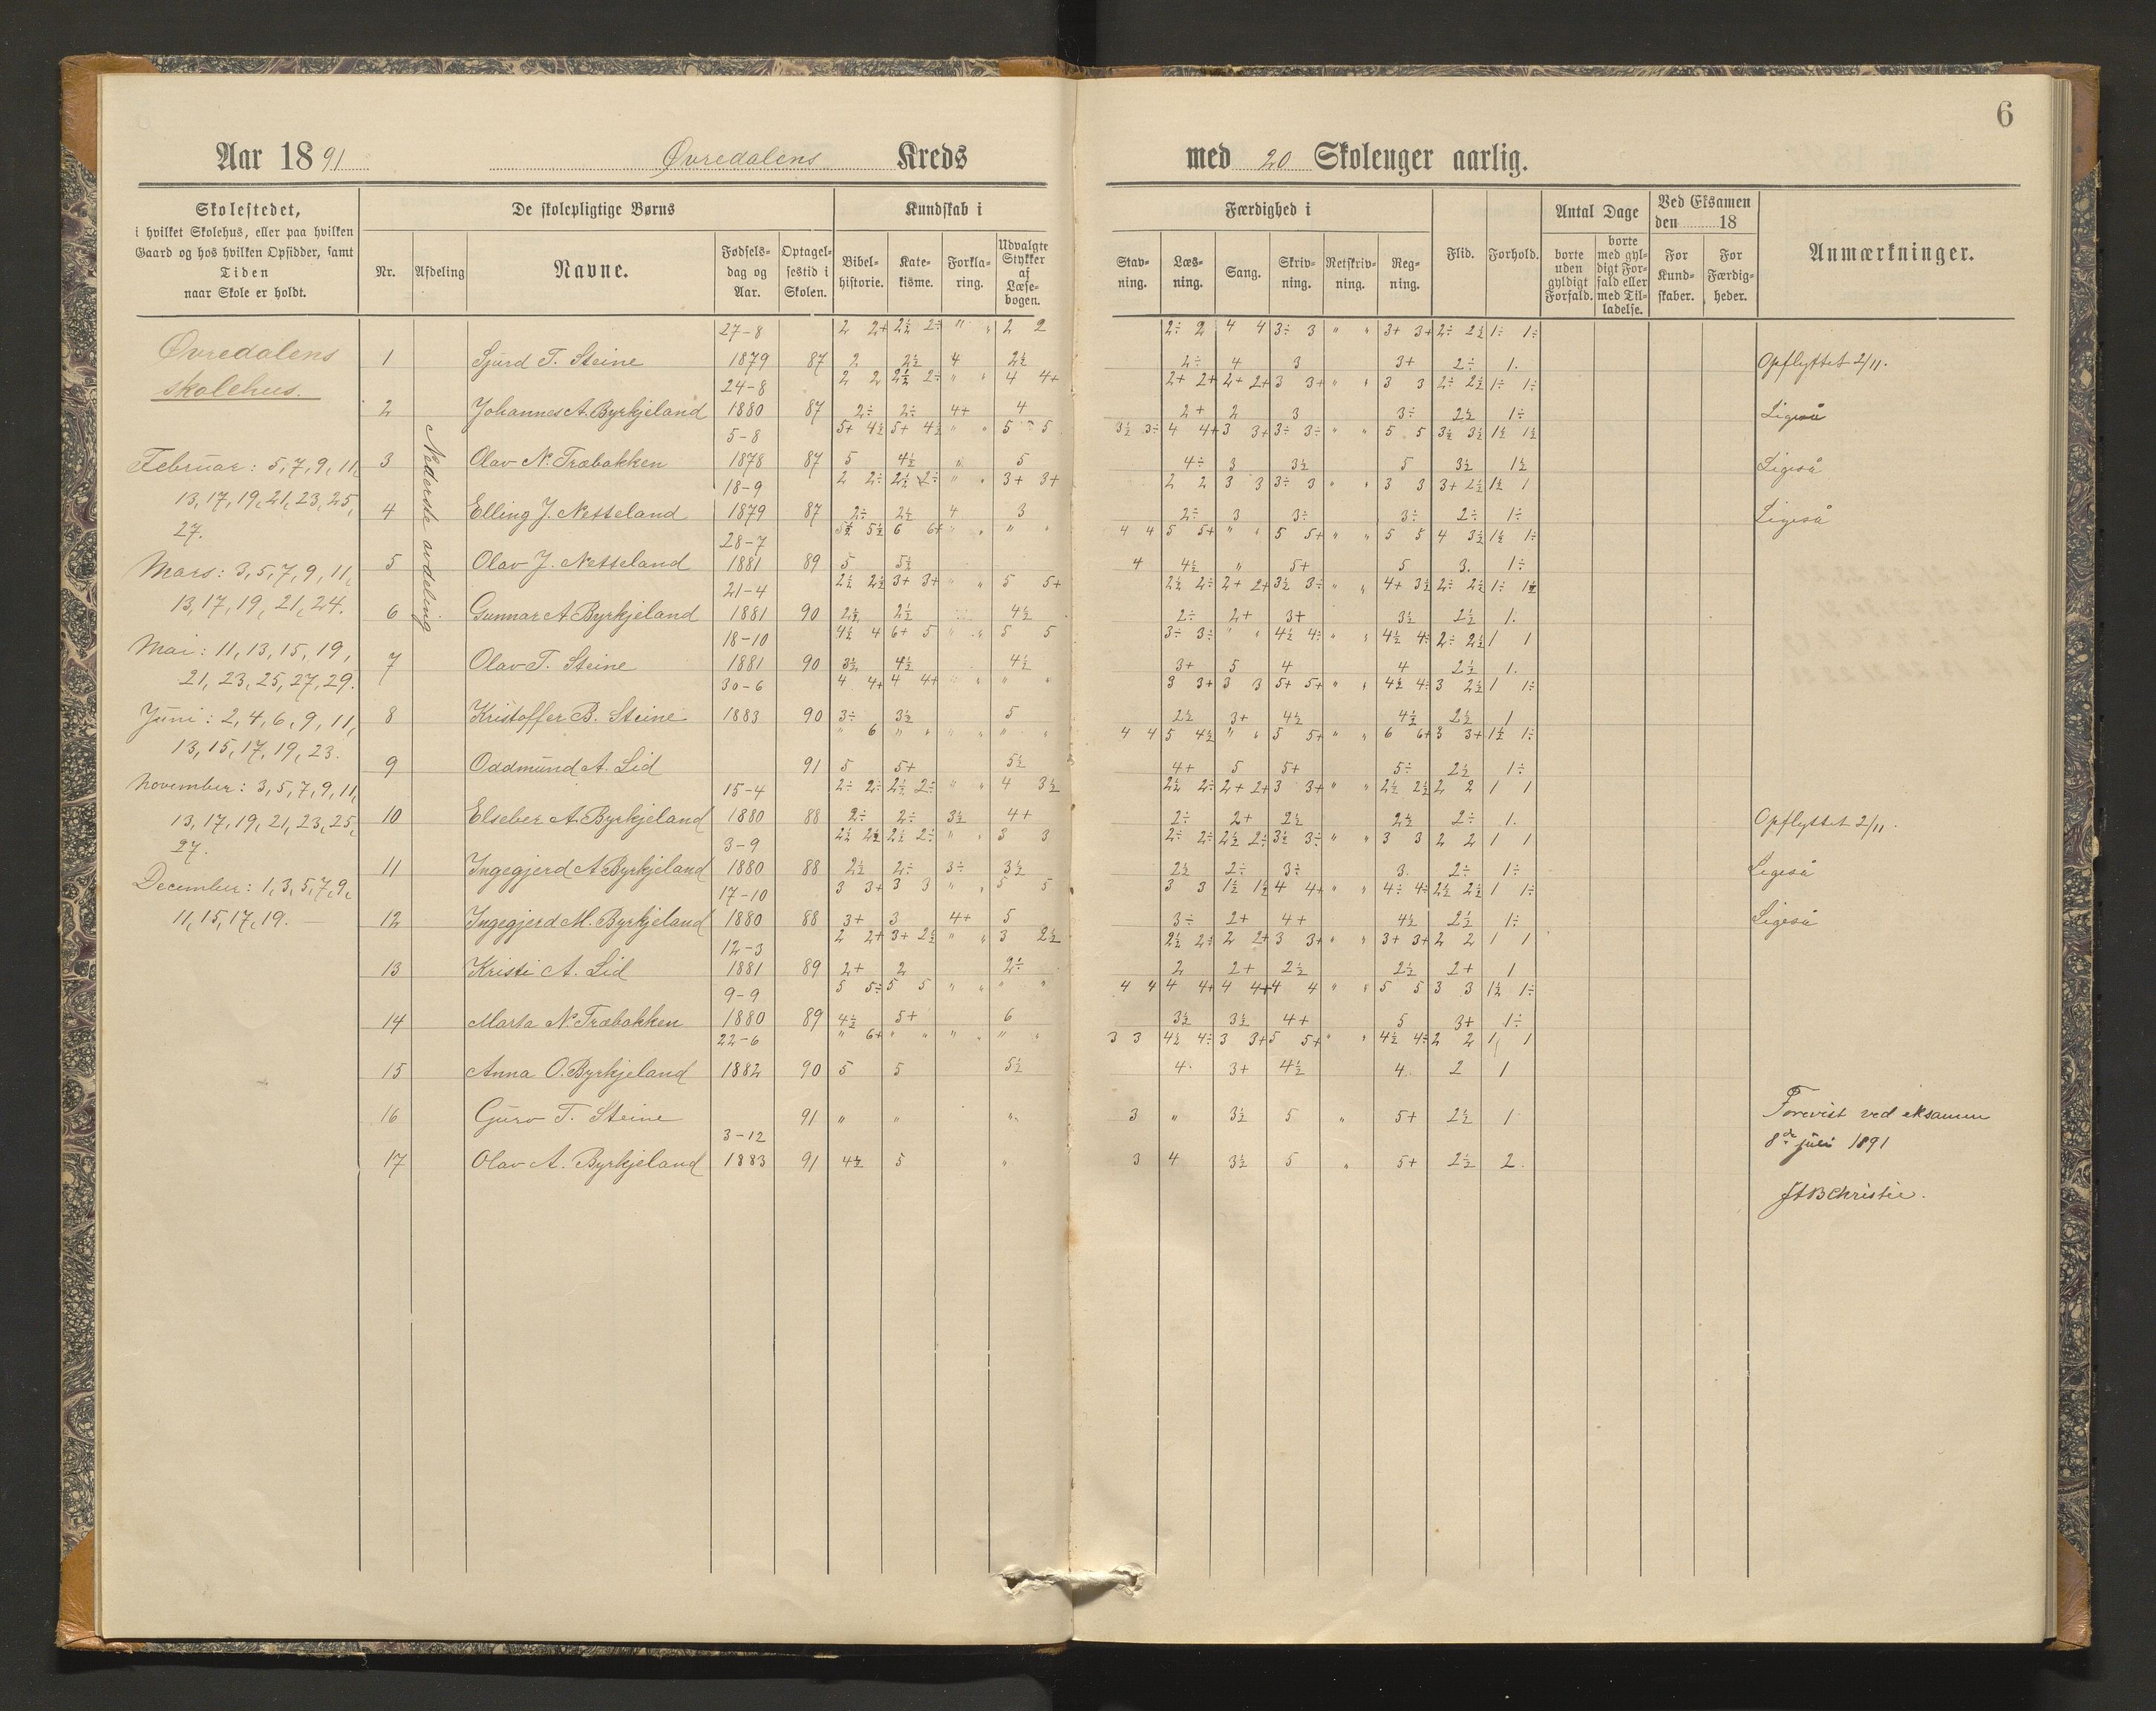 6
Aar 1891 Øvredalens Kreds med 20 Skoleuger aarlig.
Skolestedet,
i hvilket Skolehus, eller paa hvilken
Gaard og hos hvilken Opsidder, samt
Tiden
naar Skole er holdt.
De skolepligtige Børns
Nr. Afdeling Navne. Fødsels-dag og Aar. Optagel-sestid i Skolen.
Kundskab i
Bibel-historie. Kate-kisme. Forkla-ring. Udvalgte Stykker af Læse-bogen.
Færdighed i
Stav-ning. Læs-ning. Sang. Skriv-ning. Retskriv-ning. Reg-ning.
Flid. Forhold.
Antal Dage
borte uden gyldigt Forfald. borte med gyl-digt For-fald eller med Til-ladelse.
Ved Eksamen den 18
For Kund-skaber. For Færdig-heder.
Anmærkninger.
Øvredalens
skolehus.
Februar: 5, 7, 9, 11,
13, 17, 19, 21, 23, 25,
27.
Mars: 3, 5, 7, 9, 11,
13, 17, 19, 21, 24.
Mai: 11, 13, 15, 19,
21, 23, 25, 27, 29.
Juni: 2, 4, 6, 9, 11,
13, 15, 17, 19, 23.
November: 3, 5, 7, 9, 11,
13, 17, 19, 21, 23, 25,
27.
December: 1, 3, 5, 7, 9,
11, 15, 17, 19. —
Nederste avdeling
27-8 2 2+ 2½ 2÷ " " 2 2 2÷ 2 4 4 3÷ 3 " " 3+ 3+ 2÷ 2½ 1÷ 1÷
1 Sjurd T. Steine 1879 87 2 2½ 4 2½ 2÷ 4 3 3+ 2÷ 1. Opflyttet 2/11.
24-8 2 2 2½ 2÷ " " 4 4+ 2+ 2+ 2+ 2+ 3 3+ " " 3 3 2÷ 2½ 1÷ 1÷
2 Johannes A. Byrkjeland 1880 87 2÷ 2÷ 4+ 4 2+ 2 3 3÷ 2½ 1÷ Ligeså
5-8 5+ 4½ 5+ 4½ " " 5 5 3½ 3÷ 4 4+ 3 3+ 3÷ 3÷ " " 5 5 3½ 3½ 1½ 1½
3 Olav N. Træbakken 1878 87 5 4½ " 5 4÷ 3 3½ 5 3½ 1½ Ligeså
18-9 2 2÷ 2½ 2÷ " " 3+ 3+ 2 2 3 3 3÷ 3 " " 3 3 3+ 2½ 1½ 1
4 Elling J. Nesseland 1879 87 2÷ 2½ 4 3 2÷ 3 3÷ 3÷ 2÷ 1÷ Ligeså
28-7 5½ 5½ 6 6+ " " " " 4 4 5 5+ " " 5 5+ " " 5 5 4 3½ 1½ 1÷
5 Olav J. Nesseland 1881 89 5 5½ 4 4½ " 5+ 5 3. 1÷
21-4 2½ 2½ 3+ 3+ " " 5 5+ 2½ 2÷ 2+ 2+ 3½ 3÷ " " 4+ 3½ 2÷ 2½ 1÷ 1½
6 Gunnar A. Byrkjeland 1881 90 2½ 2½ 4½ 2÷ 2+ 3+ 3½ 2½ 1.
18-10 4½ 4 6+ 5 " " 5 5 3÷ 3÷ " " 4½ 4÷ " " 4½ 4÷ 2÷ 2½ 1 1
7 Olav T. Steine 1881 90 3½ 4½ 4½ 3+ 5 4 4 2½ 1.
30-6 4 4+ 4 4+ " " " " 3 3+ 3 3 5+ 5+ " " 4½ 4÷ 3 2½ 1 1÷
8 Kristoffer B. Steine 1883 90 3÷ 3½ 5 2½ 3+ 4½ 4½ 2½ 1
" 6 " " " " " " 4 4 5 4½ " " 5 5+ " " 6 6+ 3 3+ 1½ 1÷
9 Oddmund A. Lid 91 5 5+ 5½ 4+ 5 5+ 5÷ 2½ 1÷
15-4 2÷ 2÷ 2½ 2÷ " " 4 3½ 2½ 2÷ 2+ 2+ 3 3+ " " 2½ 2½ 2 2 1 1
10 Elseber A. Byrkjeland 1880 88 2÷ 2÷ 3½ 4+ 2÷ 2+ 2½ 2½ 2÷ 1. Opflyttet 2/11.
3-9 2½ 2½ 2½ 2÷ " " 3 3 2÷ 2÷ 2½ 2÷ 3½ 3÷ " " 3 3 2 2 1 1
11 Ingegjerd A. Byrkjeland 1880 88 2½ 2÷ 3÷ 3½ 2½ 2÷ 3÷ 3. 2÷ 1÷ Ligeså
17-10 3 3+ 3 3 " " 5 5 3 3 1½ 1½ 4 4+ " " 4÷ 4÷ 2½ 2½ 1 1÷
12 Ingegjerd M. Byrkjeland 1880 88 3+ 3 4+ 5 3÷ 2+ 4+ 4½ 2½ 1÷ Ligeså
12-3 2 2+ 3+ 2½ " " 3 2½ 2½ 2÷ 2 2+ 3 3+ " " 3+ 3+ 2 2 1 1
13 Kristi A. Lid 1881 89 2+ 2 2÷ 2 2+ 2½ 2½ 2+ 1
9-9 5 5÷ 5 5 " " " " 4 4 4 4+ 4 4+ 4 4 " " 5 5 3 3 1½ 1÷
14 Marta N. Træbakken 1880 89 4½ 5+ 6 3½ 3½ 4+ 5 3+ 1÷
22-6 " 6+ " " " " " " 3 3 4½ 4÷ 3 3+ 5 5+ " " 4½ 4÷ 2 2 1 1
15 Anna O. Byrkjeland 1882 90 5 5 5½ 4. 3+ 4½ 4. 2 1
16 Guro T. Steine 91 " " " 3 " 3½ 5 " 5+ 2½ 1
3-12
17 Olav A. Byrkjeland 1883 91 4½ 5 " 3 4 3½ 5 " 5+ 2½ 2.
Forevist ved eksamen
8de juli 1891
JAB Christie.